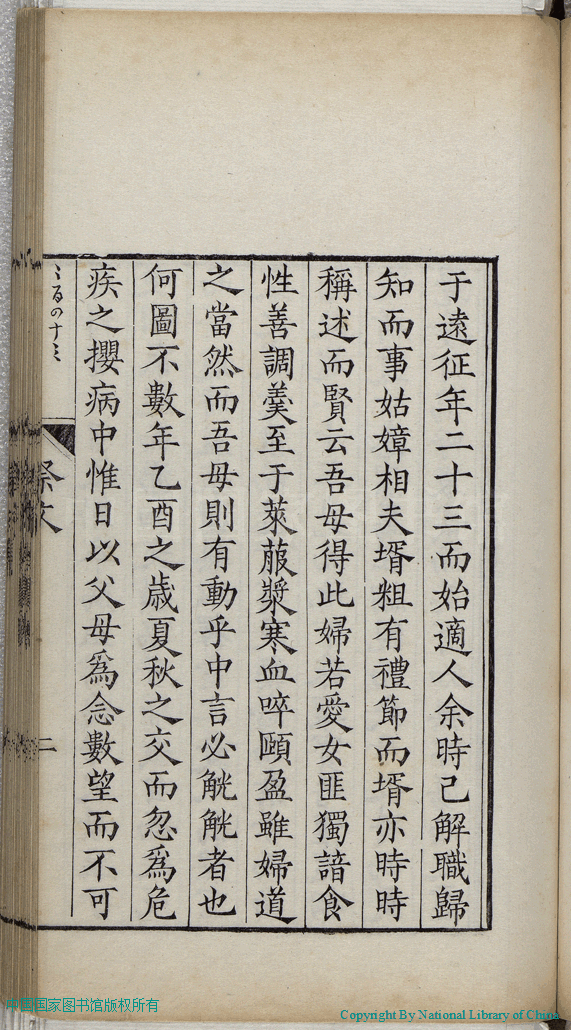 于遠征年二十三而始適人余時己解職歸
知而事姑嫜相夫壻粗有禮節而壻亦時時
稱述而賢云吾母得此婦若愛女匪獨諳食
性善調羹至于萊菔漿寒血啐頤盈雖婦道
之當然而吾母則有動乎中言必觥觥者也
何圖不數年乙酉之歲夏秋之交而忽爲危
疾之攖病中惟日以父母爲念數望而不可
祭文
二
中国国家图书馆版权所有
Copyright By National Library of China